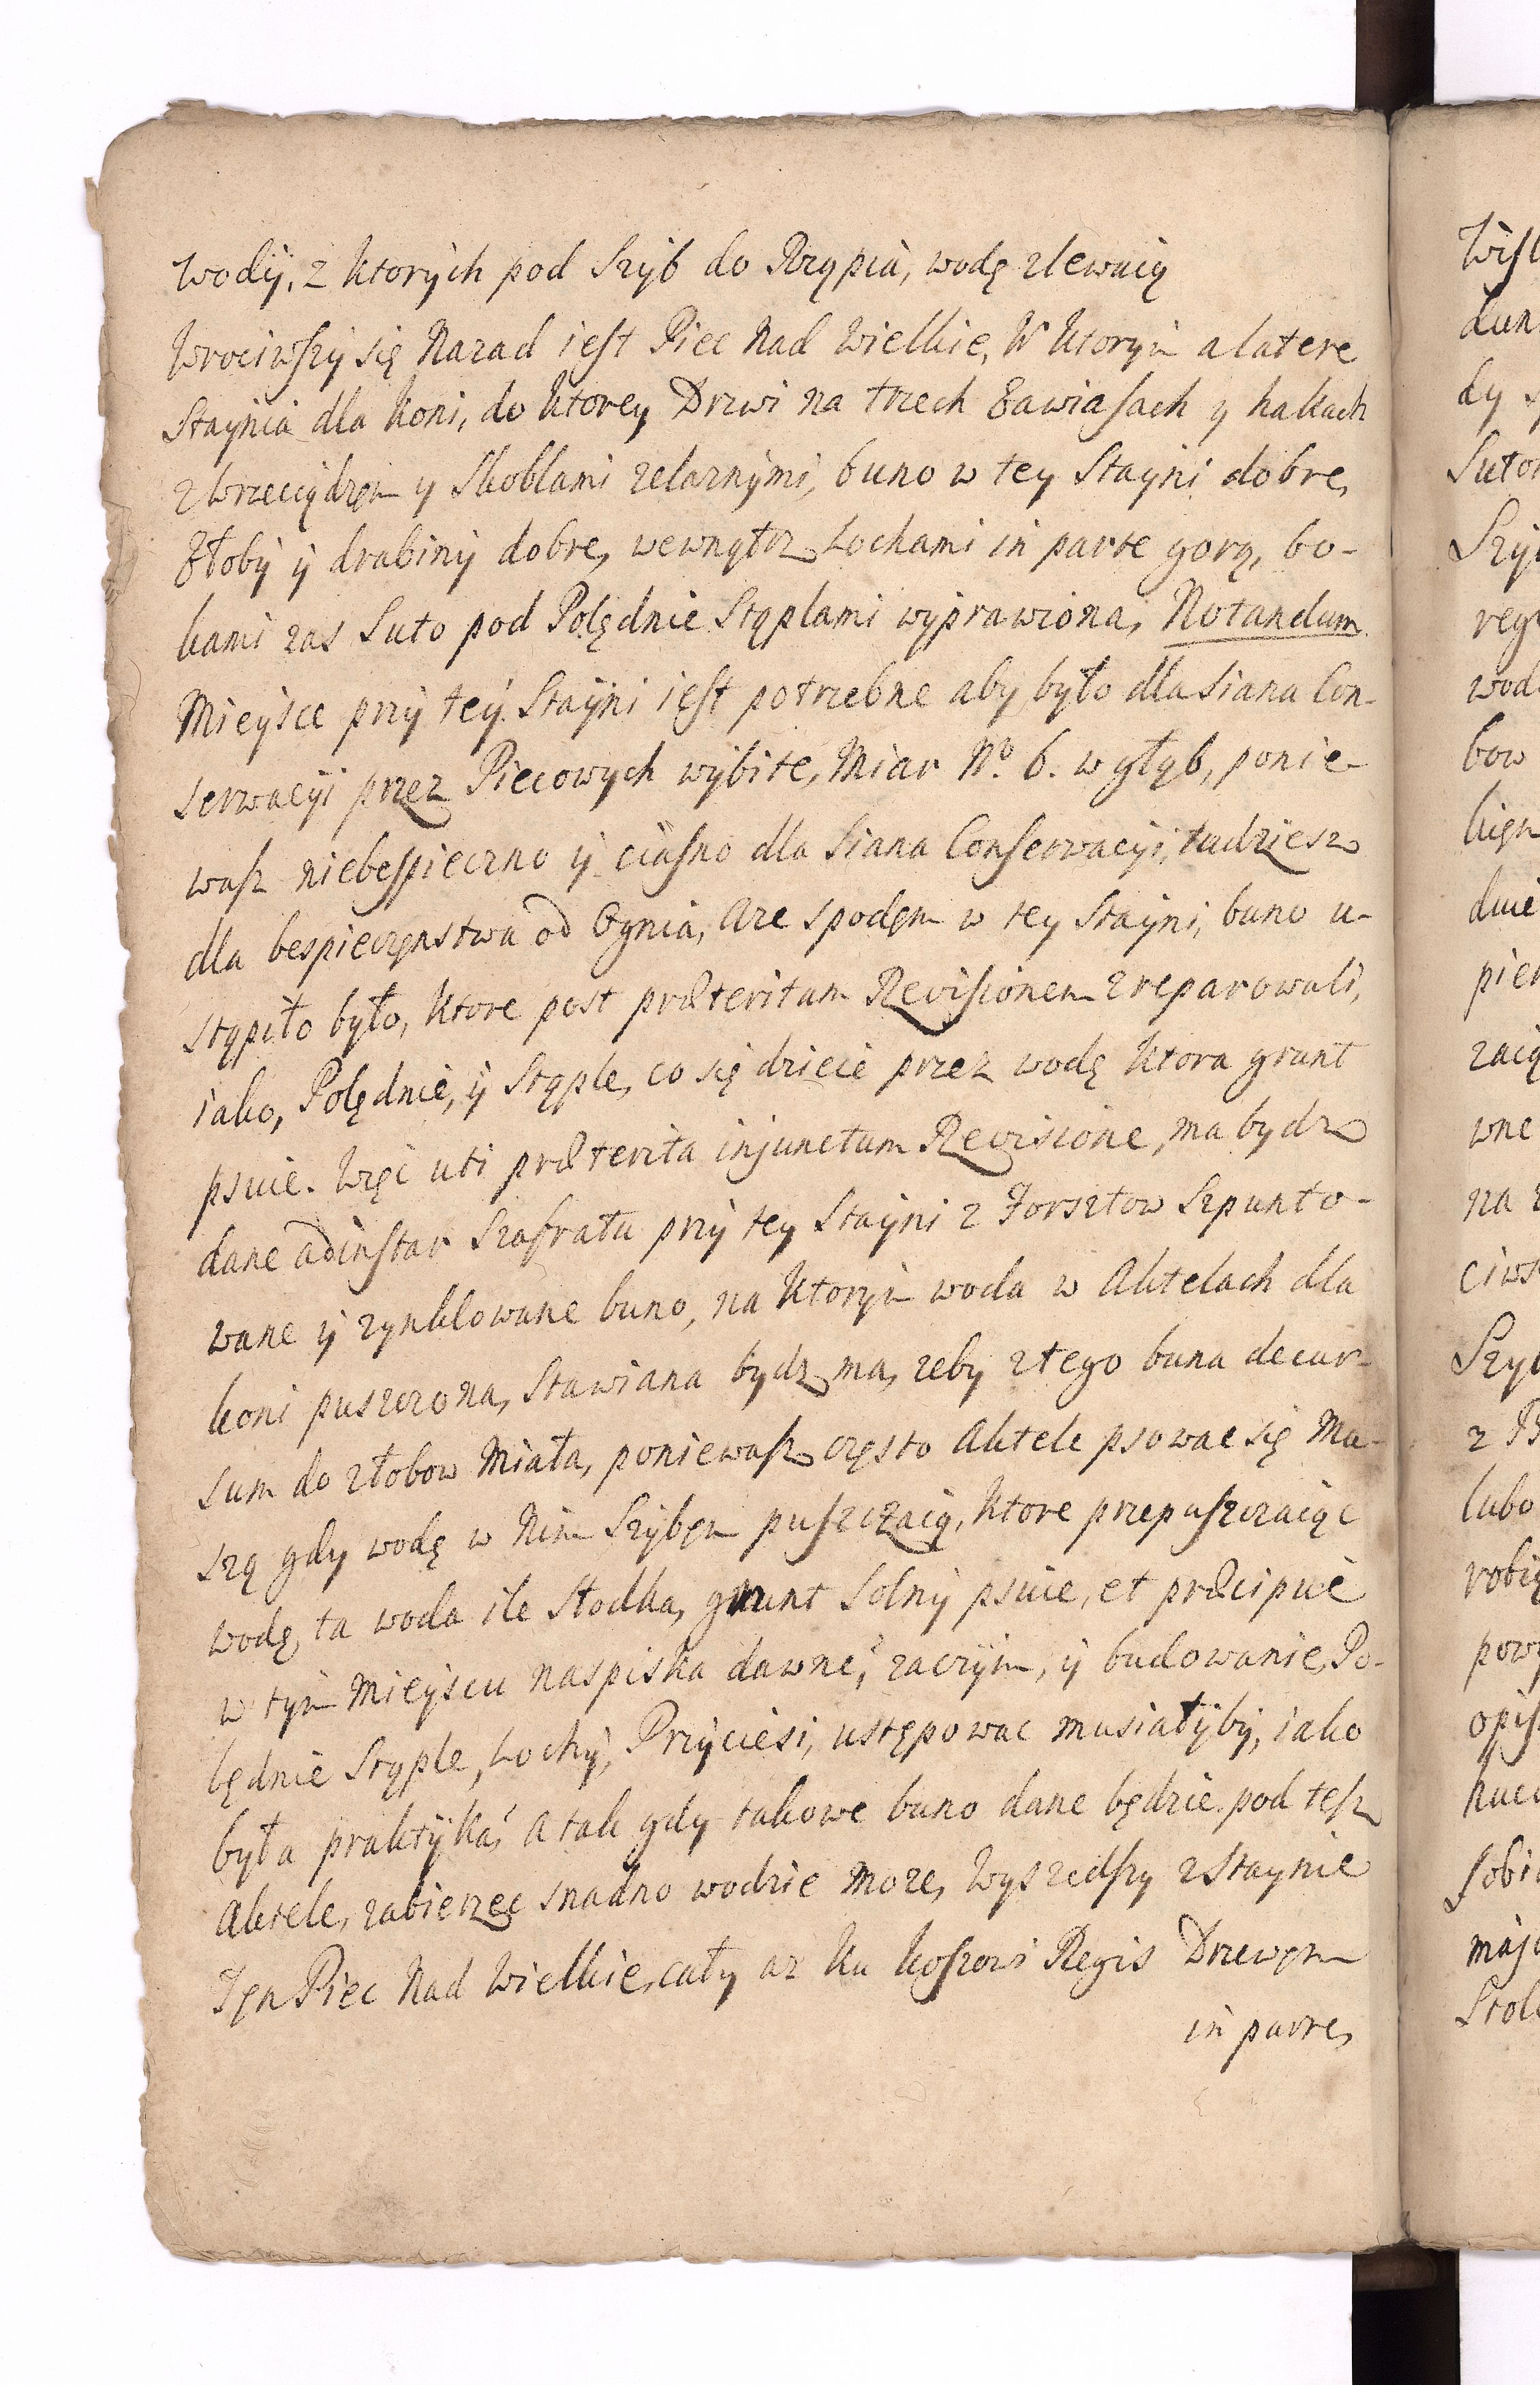 Wody, z ktorych pod Szyb do Rząpia, wodę zlewaią
Wrociwszy się Nazad iest Piec Nad Wielkie, W ktorym a latere
Staynia dla koni, do ktorey Drzwi na trzech Zawiasach y hakach
z Wrzeciądzem y Skoblami zelaznymi, buno w tey Stayni dobre,
Złoby y drabiny dobre, wewnątrz Lochami in parte gorą, bo-
kami zas Suto pod Polędnie Stęplami wyprawiona, Notandum
Mieysce przy tey Stayni iest potrzebne aby było dla siana Con-
serwacyi przez Piecowych wybite, Miar No. 6. w głąb, ponie-
wasz niebespieczno y ciasno dla Siana Conserwacyi, tudziesz
dla bespieczenstwa od Ognia, Aze spodem w tey Stayni, buno u-
stąpiło było, ktore post præteritam Revisionem zreparowali,
iako, Polędnie, y Stęple, co się dzieie przez wodę ktora grunt
psuie. Więc uti præterita injunctum Revisione, ma bydz
dane adinstar Szafratu przy tey Stayni z Forsztow Szpunto-
wane y zynklowane buno, na ktorym woda w Aktelach dla
koni puszczona, Stawiana bydz ma, zeby z tego buna decur-
sum do złobow Miała, poniewasz często Aktele psowac się Mu-
szą gdy wodę w Nim Szybem puszczaią, ktore przepuszczaiąc
wodę, ta woda ile Słodka, grunt Solny psuie, et præcipuè
w tym Mieyscu Naspiska dawne, zaczym, y budowanie, Po-
lędnie Stęple, Lochy, Przyciesi, ustępowac musiałyby, iako
była praktyka, A tak gdy takowe buno dane będzie pod tesz
Aktele, zabierzec snadno wodzie moze, Wyszedszy z Staynie
Ten Piec Nad Wielkie, cały az ku koszowi Regis Drzewem
in parte,
Wisl
dun
dy
Sutor
Szyb
regu
wod
bow
kiem
dnie
pier
zaią
wne
na
ciws
Szyb
z
lubo
robią
powy
opis
sobi
maja
Stol